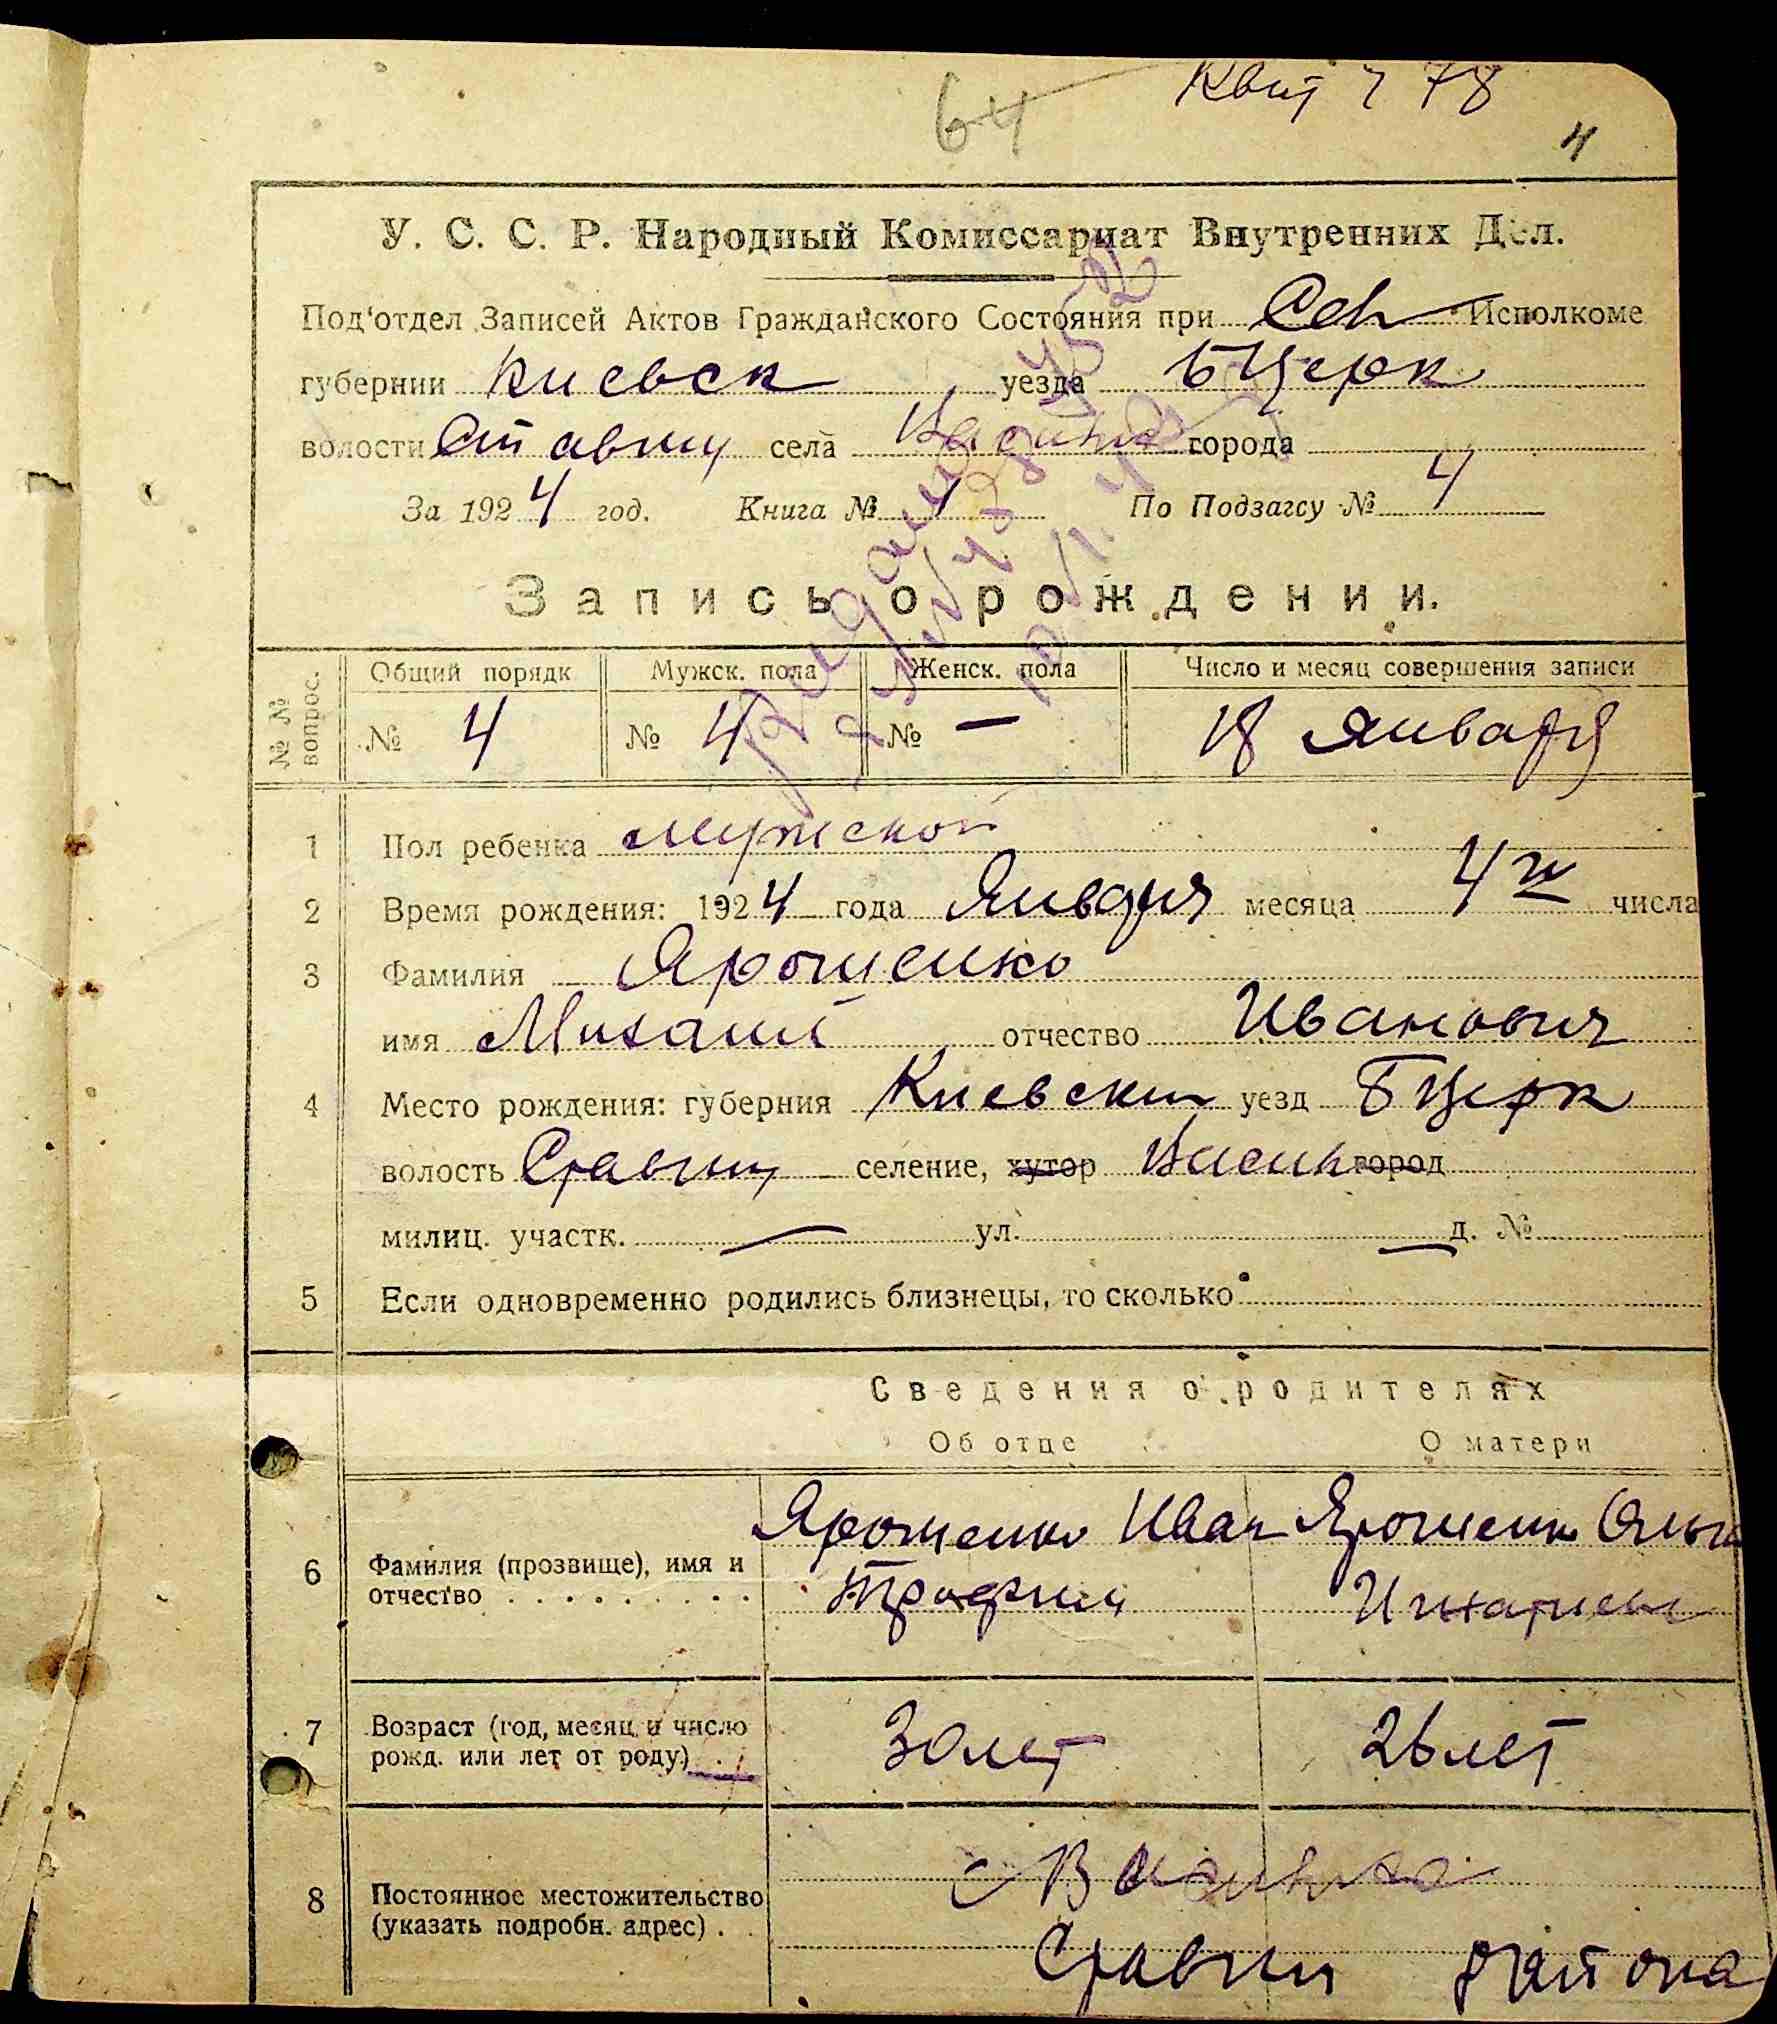 Квит 4 78
64
4
У. С. С. Р. Народный Комиссариат Внутренних Дел.
Под'отдел Записей Актов Гражданского Состояния при Сель Исполкоме
губернии Киевск уезда БЦерк
волости Ставищ села города
За 1924 год. Книга № 1 По Подзагсу № 4
Запись о рождении.
№ № вопрос. Общий порядк Мужск. пола Женск. пола Число и месяц совершения записи
№ 4 № 4 № — 18 Января
1 Пол ребенка мужской
2 Время рождения: 1924 года Января месяца 4го числа
3 Фамилия Ярошенко
имя Михаил отчество Иванович
4 Место рождения: губерния Киевски уезд БЦерк
волость Ставищ селение, хутор город
милиц. участк. — ул. — д. №
5 Если одновременно родились близнецы, то сколько
Сведения о родителях
Об отце О матери
Ярошенко Иван Ярошенко Ольга
6 Фамилия (прозвище), имя и
отчество . . . . . . . . . Трофим
7 Возраст (год, месяц и число
рожд. или лет от роду) . . 30 лет 26 лет
8 Постоянное местожительство
(указать подробн. адрес) . .
Ставищ района